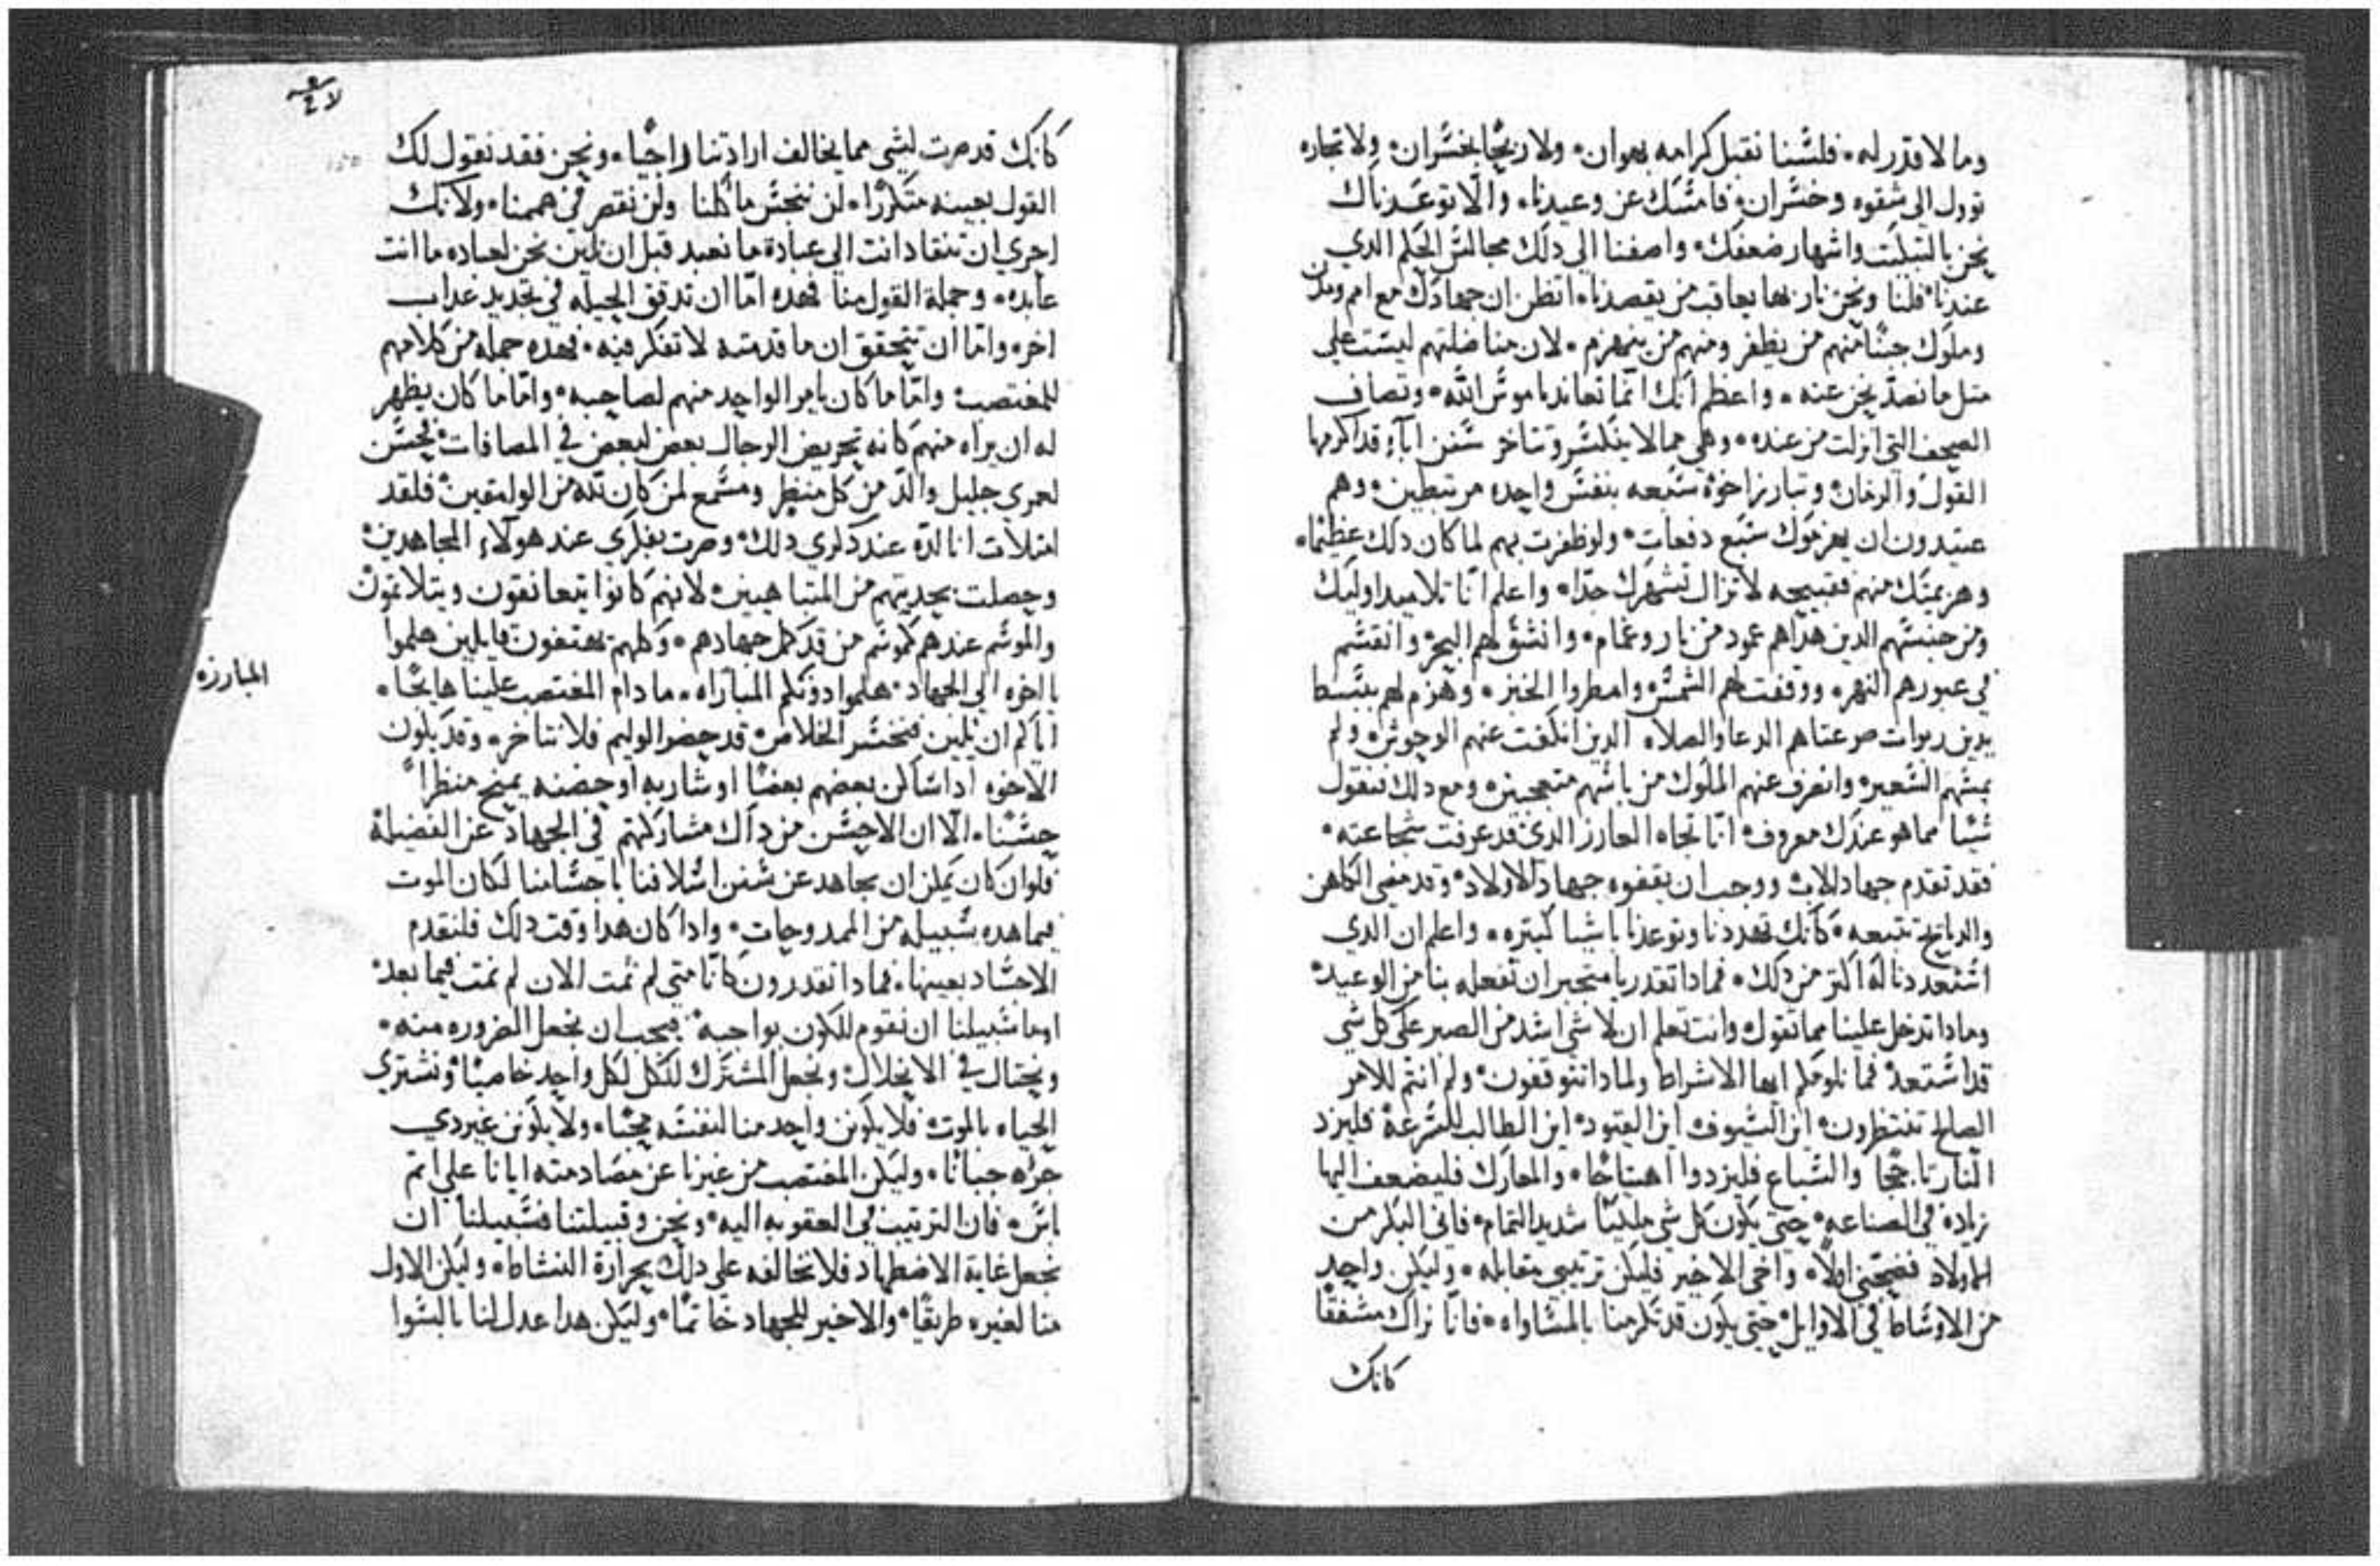 وما لا قدر له۰ فلسنا نقبل كرامه بهوان۰ ولا ربحًا بخسران۰ ولا تجاره
توول الى شقوه وخسران۰ فامسك عن وعيدنا۰ والا توعدناك
نحن بالتبكيت واشهار ضعفك۰ واضفنا الى دلك مجالس الحكم الدي
عندنا۰ فلنا ونحن نار بها يعاقب من يقصدنا۰ اتظن ان جهادك مع امم ومدن
وملوك جسًا منهم من يظفر ومنهم من ينهزم۰ لان مناضلتهم ليست على
متل ما نصد نحن عنه۰ واعظم انك انما تعاند ناموس الله۰ وتصاف
الصحف التي انزلت من عنده۰ وهي مما لا ينكسر وتتاخر سنن ابآء قد اكرمها
القول والزمان۰ وتبارز اخوة سبعه بنفس واحده مرتبطين۰ وهم
عتيدون ان يهزموك سبع دفعات۰ ولو ظفرت بهم لما كان دلك عظيمًا۰
وهزيمتك منهم فقبيحه لا تزال تشهرك جدًا۰ واعلم انا تلاميد اوليك
ومن جنسهم الدين هداهم عمود من نار وغمام۰ وانشق لهم البحر۰ وانقسم
في عبورهم النهر۰ ووقفت لهم الشمس۰ وامطروا الخبز۰ وهزم لهم ببسط
يدين ربوات صرعتاهم الدعا والصلاه۰ الدين انكفت عنهم الوحوش۰ ولم
يمسهم السعير۰ وانصرف عنهم الملوك من باسهم متعجبين۰ ومع دلك فنقول
شيًا مما هو عندك معروف۰ انا تجاه العازر الدي قد عرفت شجاعته۰
فقد تقدم جهاد للاب۰ ووجب ان يقفوه جهاد للاولاد۰ وقد مضى الكاهن
والدبايح تتبعه۰ كانك تهددنا وتوعدنا باشيا كتيره۰ واعلم ان الدي
استعددنا له اكتر من دلك۰ فمادا تقدر يا متجبر ان تفعله بنا من الوعيد۰
ومادا تدخل علينا مما تقول۰ وانت تعلم ان لا شي اشد من الصبر على كل شي
قد استعد۰ فما نلومكم ايها الاشراط ولمادا تتوقفون۰ ولم انتم للامر
الصالح تنتظرون۰ اين السيوف اين القيود۰ اين الطالب للسرعة فليزد
النار تاججًا والسباع فليزدوا اهتياجًا۰ والمعارك فليضعف اليها
زيادة في الصناعه۰ حتى يكون كل شي ملكيًا شديد التمام۰ فاني البكر من
الاولاد فضحني اولًا۰ واخي الاخير فليكن ترتيبي مقابله۰ وليكن واحد
من الاوساط في الاوايل۰ حتى يكون قد تكرمنا بالمساواه۰ فانا نراك مشفقًا
كانك
كانك قد صرت لشي مما يخالف ارادتنا راجيًا۰ ونحن فقد نقول لك
القول بعينه متكررًا۰ لن ننجس ماكلنا ولن نقصر في هممنا۰ ولانك
احرى ان تنقاد انت الى عبادة ما نعبد قبل ان نلين نحن لعباده ما انت
عابده۰ وجملة القول منا فهده اما ان تدقق الحيله في تجديد عداب
اخر۰ واما ان تتحقق ان ما قدمته لا تفكر فيه۰ فهده جمله من كلامهم
للمغتصب۰ واما ما كان يامر الواحد منهم لصاحبه۰ واما ما كان يظهر
له ان يراه منهم كانه تحريض الرجال بعض لبعض في المصافات۰ فحسن
لعمري جليل والد من كل منظر ومسمع لمن كان لله من الوامقين۰ فلقد
امتلات انا لدة عند دكري دلك۰ وصرت بفكري عند هولاء المجاهدين۰
وحصلت بحديتهم من المتباهيين۰ لانهم كانوا يتعانقون ويتلاتمون
والموسم عندهم كموسم من قد كمل جهادهم۰ وكلهم يهتفون قايلين هلموا
يا اخوه الى الجهاد۰ هلموا دونكم المباراه۰ ما دام المغتصب علينا هايجًا۰
المبارزه
اياكم ان يلين فنخسر الخلاص۰ قد حضر الوليم فلا نتاخر۰ وقد يكون
الاخوه اداساكن بعضهم بعضًا او شاربه او حضنه يمنح منظرًا
حسنًا۰ الا ان الاحسن من داك مشاركتهم في الجهاد عن الفضيلة
فلو ان كان يمكن ان نجاهد عن سنن اسلافنا باجسامنا لكان الموت
فيما هده سبيله من الممدوحات۰ وادا كان هدا وقت دلك فلنقدم
الاجساد بعينها۰ فمادا تقدرون كانا متى لم نمت الان لم نمت فيما بعد۰
اوما سبيلنا ان نقوم للكون بواجبه۰ فيجب ان نجعل الضروره منه۰
ونحتال في الانحلال۰ ونجعل المشترك للكل لكل واحد خاصيًا۰ ونشتري
الحياه بالموت۰ فلا يكونن واحد منا لنفسه محبًا۰ ولا يكونن غير دي
جراه جبانًا۰ وليكن المغتصب من غيرنا عن مصادمته ايانا على اتم
ياس۰ فان الترتيب في العقوبه اليه۰ ونحن وقبيلتنا فسبيلنا ان
نجعل غاية الاضطهاد فلا نخالفه على دلك بحرارة النشاط۰ وليكن الاول
منا لغيره طريقًا۰ والاخير للجهاد خاتمًا۰ وليكن هدا عدل لنا بالسوا